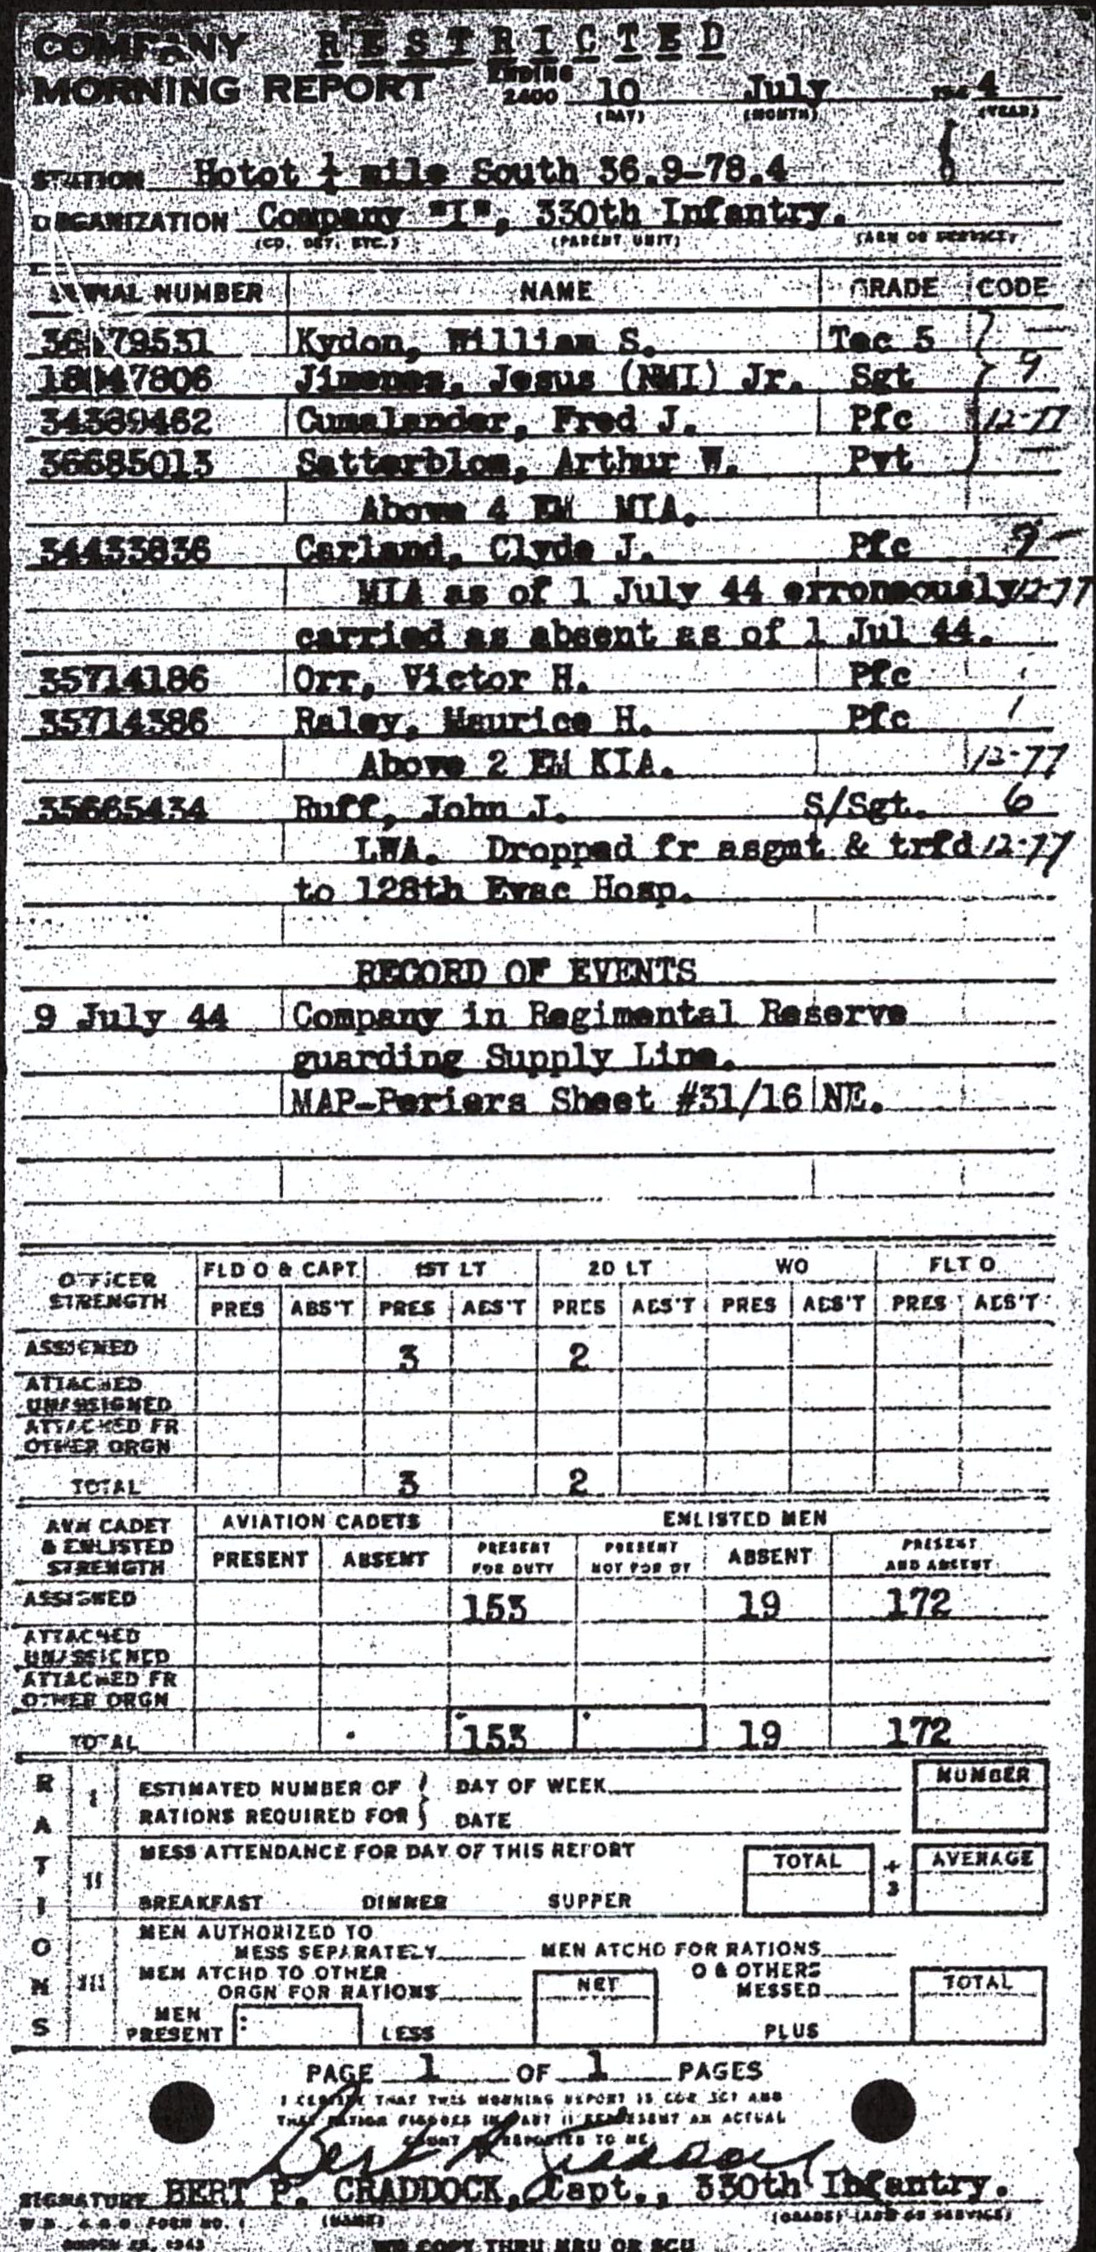 COMPANY RESTRICTED
MORNING REPORT ENDING 2400 10 July 194 4
(DAY) (MONTH) (YEAR)
STATION Hotot mile South 36.9-78.4
ORGANIZATION Company "I", 330th Infantry.
(CO. DET. ETC.) (PARENT UNIT) (ARM OR SERVICE)
SERIAL NUMBER NAME GRADE CODE
Kydon, William S. Tec 5 —
Jimenes, Jesus (NMI) Jr. Sgt 9
34389462 Cumalander, Fred J. Pfc 12-77
36685013 Satterblom, Arthur W. Pvt —
Above 4 EM MIA.
34433836 Carland, Clyde J. Pfc 9-
MIA as of 1 July 44 erroneously 12-77
carried as absent as of 1 Jul 44.
35714186 Orr, Victor H. Pfc 1
35714386 Raley, Maurice H. Pfc 1
Above 2 EM KIA. 12-77
35665434 Ruff, John J. S/Sgt. 6
LWA. Dropped fr asgmt & trfd 12-77
to 128th Evac Hosp.
RECORD OF EVENTS
9 July 44 Company in Regimental Reserve
guarding Supply Line.
MAP-Periers Sheet #31/16 NE.
OFFICER STRENGTH FLD O & CAPT 1ST LT 2D LT WO FLT O
PRES ABS'T PRES ABS'T PRES ABS'T PRES ABS'T PRES ABS'T
ASSIGNED 3 2
ATTACHED UNASSIGNED
ATTACHED FR OTHER ORGN
TOTAL 3 2
AVN CADET & ENLISTED STRENGTH AVIATION CADETS ENLISTED MEN
PRESENT ABSENT PRESENT FOR DUTY PRESENT NOT FOR DY ABSENT PRESENT AND ABSENT
ASSIGNED 153 19 172
ATTACHED UNASSIGNED
ATTACHED FR OTHER ORGN
TOTAL 153 19 172
RATIONS
I ESTIMATED NUMBER OF RATIONS REQUIRED FOR DAY OF WEEK NUMBER
DATE
II MESS ATTENDANCE FOR DAY OF THIS REPORT TOTAL ÷ 3 AVERAGE
BREAKFAST DINNER SUPPER
III MEN AUTHORIZED TO
MESS SEPARATELY MEN ATCHD FOR RATIONS
MEN ATCHD TO OTHER O & OTHERS
ORGN FOR RATIONS NET MESSED TOTAL
MEN PRESENT LESS PLUS
PAGE 1 OF 1 PAGES
I CERTIFY THAT THIS MORNING REPORT IS CORRECT AND
THAT RATION FIGURES IN PART II REPRESENT AN ACTUAL
COUNT REPORTED TO ME
SIGNATURE BERT P. CRADDOCK, Capt., 330th Infantry.
(NAME) (GRADE) (ARM OR SERVICE)
W.D., A.G.O. FORM NO. 1
COPY THRU MRU OR SCU